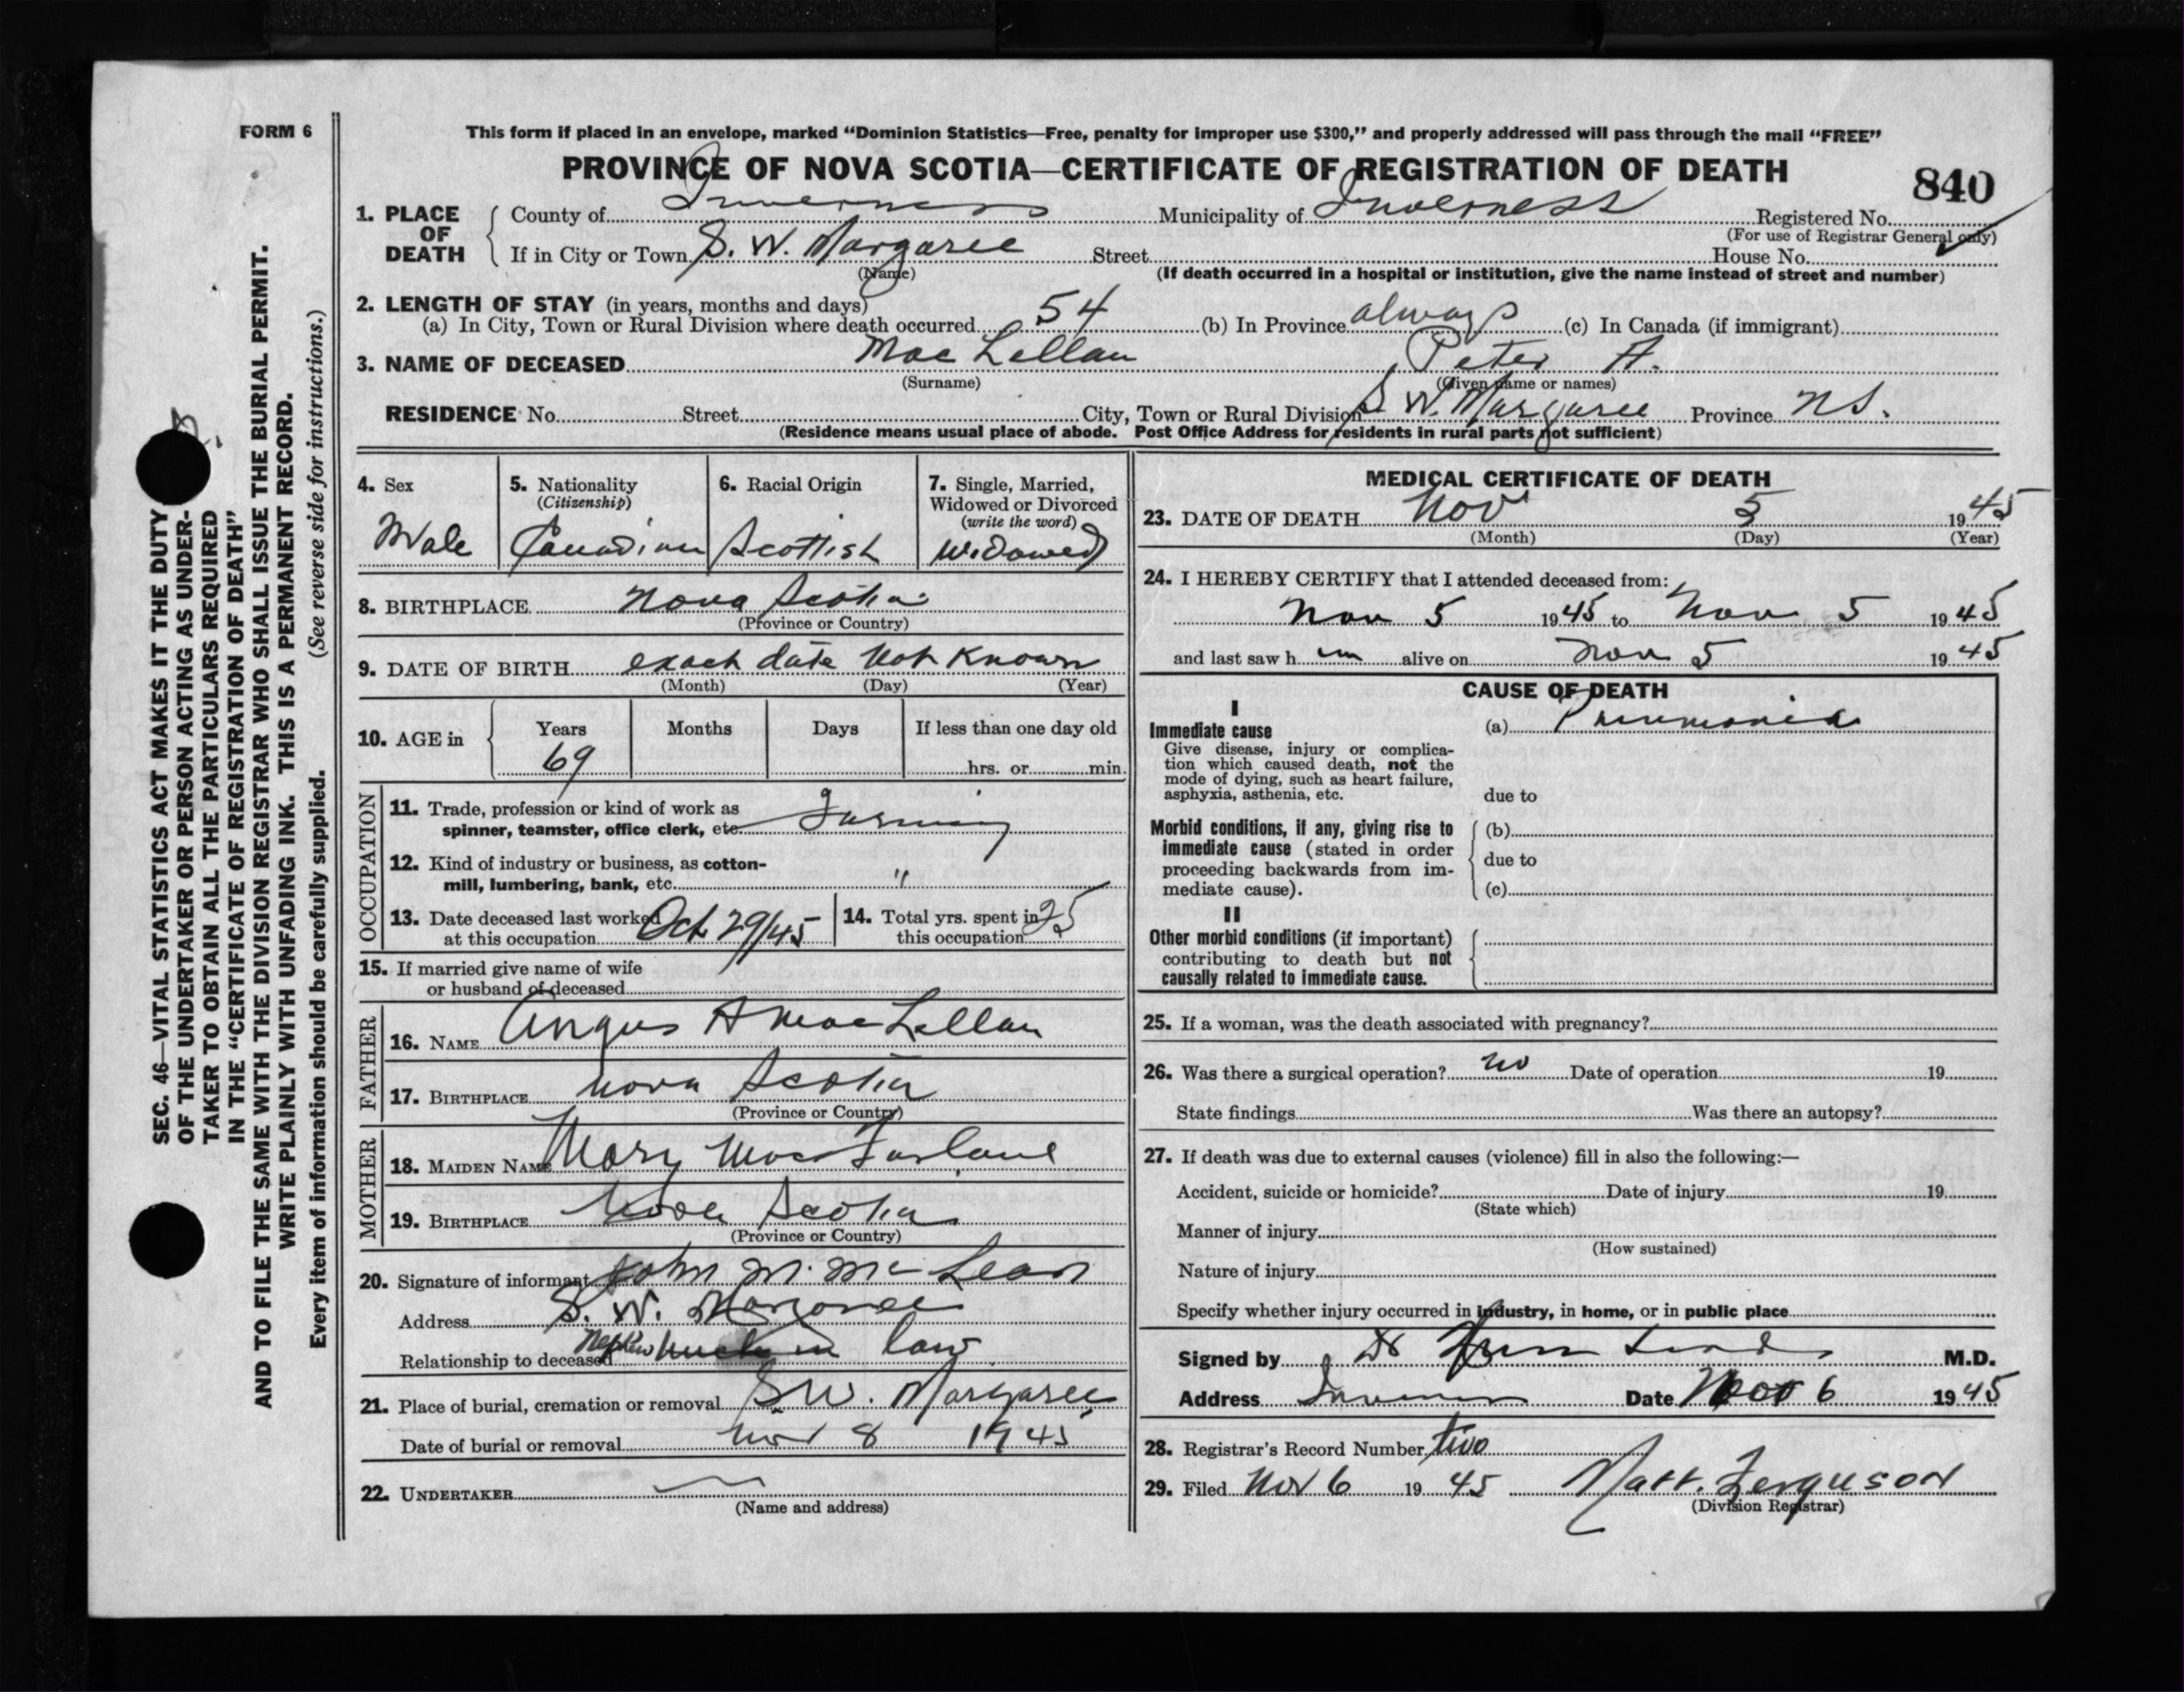 FORM 6
This form if placed in an envelope, marked “Dominion Statistics—Free, penalty for improper use $300,” and properly addressed will pass through the mail “FREE”
PROVINCE OF NOVA SCOTIA—CERTIFICATE OF REGISTRATION OF DEATH
840
1. PLACE OF DEATH { County of Inverness Municipality of Inverness Registered No.
(For use of Registrar General only)
If in City or Town S. W. Margaree Street House No.
(Name) (If death occurred in a hospital or institution, give the name instead of street and number)
2. LENGTH OF STAY (in years, months and days)
(a) In City, Town or Rural Division where death occurred 54 (b) In Province always (c) In Canada (if immigrant)
3. NAME OF DECEASED Mac Lellan Peter A.
(Surname) (Given name or names)
RESIDENCE No. Street City, Town or Rural Division S W. Margaree Province N S.
(Residence means usual place of abode. Post Office Address for residents in rural parts not sufficient)
4. Sex
Male
5. Nationality
(Citizenship)
Canadian
6. Racial Origin
Scottish
7. Single, Married,
Widowed or Divorced
(write the word)
Widowed
8. BIRTHPLACE Nova Scotia
(Province or Country)
9. DATE OF BIRTH exact date not known
(Month) (Day) (Year)
10. AGE in { Years Months Days If less than one day old
69 hrs. or min.
OCCUPATION
11. Trade, profession or kind of work as
spinner, teamster, office clerk, etc. Farming
12. Kind of industry or business, as cotton-
mill, lumbering, bank, etc. "
13. Date deceased last worked
at this occupation Oct 29/45
14. Total yrs. spent in
this occupation 25
15. If married give name of wife
or husband of deceased
FATHER
16. NAME Angus A MacLellan
17. BIRTHPLACE Nova Scotia
(Province or Country)
MOTHER
18. MAIDEN NAME Mary MacFarlane
19. BIRTHPLACE Nova Scotia
(Province or Country)
20. Signature of informant John M. McLean
Address S. W. Margaree
Relationship to deceased Nephew in law
21. Place of burial, cremation or removal S W. Margaree
Date of burial or removal Nov 8 1945
22. UNDERTAKER
(Name and address)
MEDICAL CERTIFICATE OF DEATH
23. DATE OF DEATH Nov 5 1945
(Month) (Day) (Year)
24. I HEREBY CERTIFY that I attended deceased from:
Nov 5 1945 to Nov 5 1945
and last saw him alive on Nov 5 1945
CAUSE OF DEATH
I
Immediate cause (a) Pneumonia
Give disease, injury or complica-
tion which caused death, not the
mode of dying, such as heart failure,
asphyxia, asthenia, etc. due to
Morbid conditions, if any, giving rise to
immediate cause (stated in order
proceeding backwards from im-
mediate cause).
(b)
due to
(c)
II
Other morbid conditions (if important)
contributing to death but not
causally related to immediate cause.
25. If a woman, was the death associated with pregnancy?
26. Was there a surgical operation? no Date of operation 19
State findings Was there an autopsy?
27. If death was due to external causes (violence) fill in also the following:—
Accident, suicide or homicide? Date of injury 19
(State which)
Manner of injury
(How sustained)
Nature of injury
Specify whether injury occurred in industry, in home, or in public place
Signed by Dr M.D.
Address Inverness Date Nov 6 1945
28. Registrar's Record Number two
29. Filed Nov 6 1945 Matt. Ferguson
(Division Registrar)
SEC. 46—VITAL STATISTICS ACT MAKES IT THE DUTY
OF THE UNDERTAKER OR PERSON ACTING AS UNDER-
TAKER TO OBTAIN ALL THE PARTICULARS REQUIRED
IN THE “CERTIFICATE OF REGISTRATION OF DEATH”
AND TO FILE THE SAME WITH THE DIVISION REGISTRAR WHO SHALL ISSUE THE BURIAL PERMIT.
WRITE PLAINLY WITH UNFADING INK. THIS IS A PERMANENT RECORD.
Every item of information should be carefully supplied. (See reverse side for instructions.)